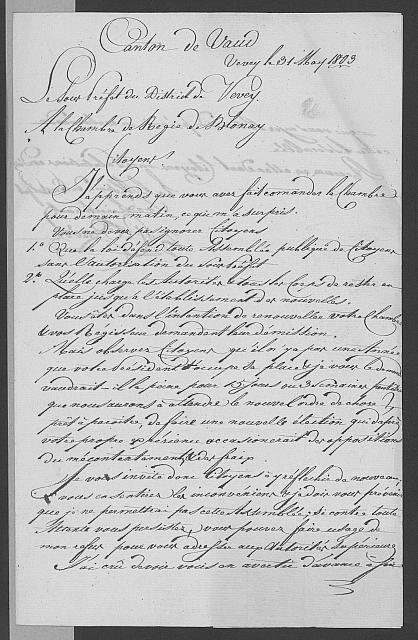 Canton de Vaud
Vevey le 31 May 1803
Le Sous Préfet du District de Vevey.
A la Chambre de Régie de Blonay
Citoyens!
J'apprends que vous avez fait comander la Chambre
pour demain matin, ce qui m'a surpris.
Vous ne devez pas ignorer Citoyens
1° Que la loi défend toute Assemblée publique de Citoyens
sans l'autorisation du Sousprefet
2° Qu'elle charge les Autorités & tous les Corps de rester en
place jusqu'à l'établissement des nouvelles.
Vous êtes dans l'intention de renouveller votre Chambre
& vos Regisseurs demandent leur démission.
Mais observez Citoyens qu'il n'y a pas une Année
que votre Président occupe sa place, & je vous le demande
vaudrait il la peine pour 15 jours ou 3 semaines
que nous aurons à attendre le nouvel ordre de chose
prêt à paroitre, de faire une nouvelle élection qui d'après
votre propre expérience occasionerait des oppositions
du mécontentement & des fraix
Je vous invite donc Citoyens à y réflechir de nouveau,
vous en sentirez les inconveniens & je dois vous prévenir
que je ne permettrai pas cette Assemblée; si contre toute
Attente vous persistez, vous pouvez faire usage de
mon refus pour vous adresser aux Autorités Supérieures
J'ai crû devoir vous en avertir d'avance